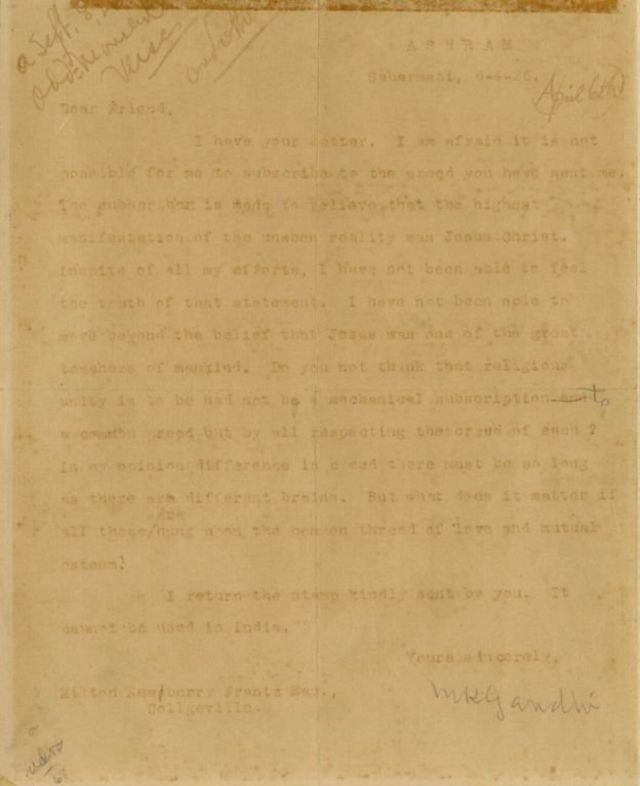 A S H R A M
Sabarmati, 6-4-26.
April 6th
Dear Friend,
I have your letter. I am afraid it is not
possible for me to subscribe to the creed you have sent me.
The subscriber is made to believe that the highest
manifestation of the unseen reality was Jesus Christ.
Inspite of all my efforts, I have not been able to feel
the truth of that statement. I have not been able to
move beyond the belief that Jesus was one of the great
teachers of mankind. Do you not think that religious
unity is to be had not be a mechanical subscription to
a common creed but by all respecting the creed of each ?
In my opinion difference in creed there must be so long
as there are different brains. But what does it matter if
all these/are hung upon the common thread of love and mutual
esteem?
I return the stamp kindly sent by you. It
cannot be used in India.
Yours sincerely,
MKGandhi
Milton Newberry Frantz Esq.,
Collgeville.